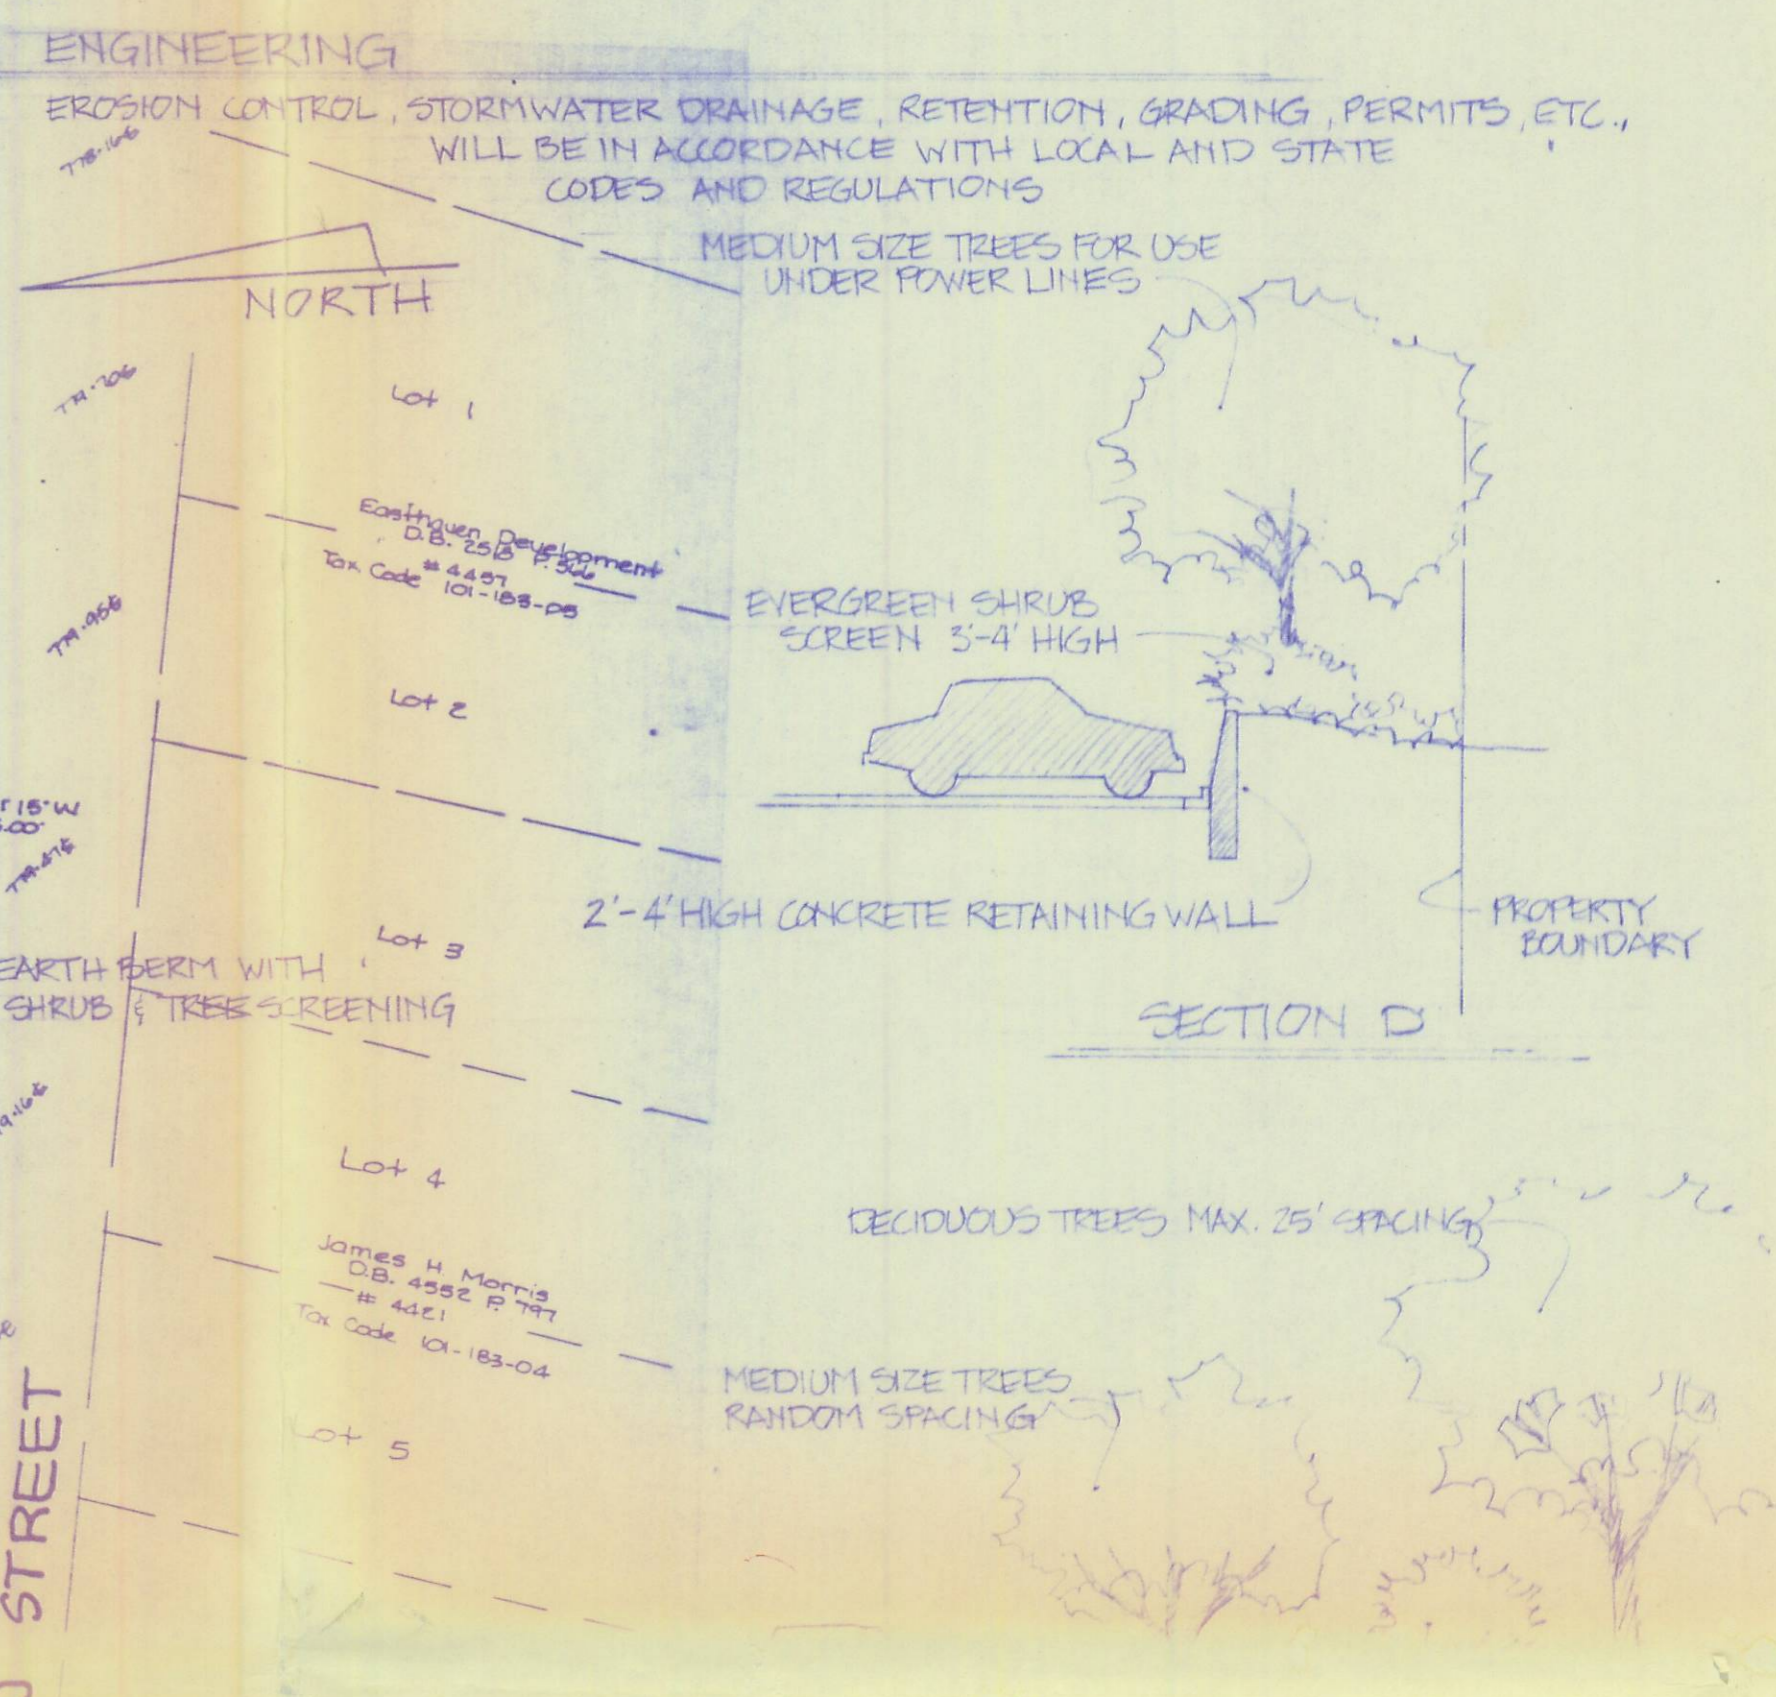 ENGINEERING
EROSION CONTROL, STORMWATER DRAINAGE, RETENTION, GRADING, PERMITS, ETC.,
WILL BE IN ACCORDANCE WITH LOCAL AND STATE
CODES AND REGULATIONS
MEDIUM SIZE TREES FOR USE
UNDER POWER LINES
NORTH
Lot 1
Easthaven Development
D.B. 2513 P. 566
# 4437
Tax Code 101-183-05
EVERGREEN SHRUB
SCREEN 3'-4' HIGH
Lot 2
15" W
2'-4' HIGH CONCRETE RETAINING WALL
PROPERTY
BOUNDARY
Lot 3
EARTH BERM WITH
SHRUB & TREE SCREENING
SECTION D
Lot 4
DECIDUOUS TREES MAX. 25' SPACING
James H. Morris
D.B. 4552 P. 797
# 4421
Tax Code 101-183-04
MEDIUM SIZE TREES
RANDOM SPACING
Lot 5
STREET